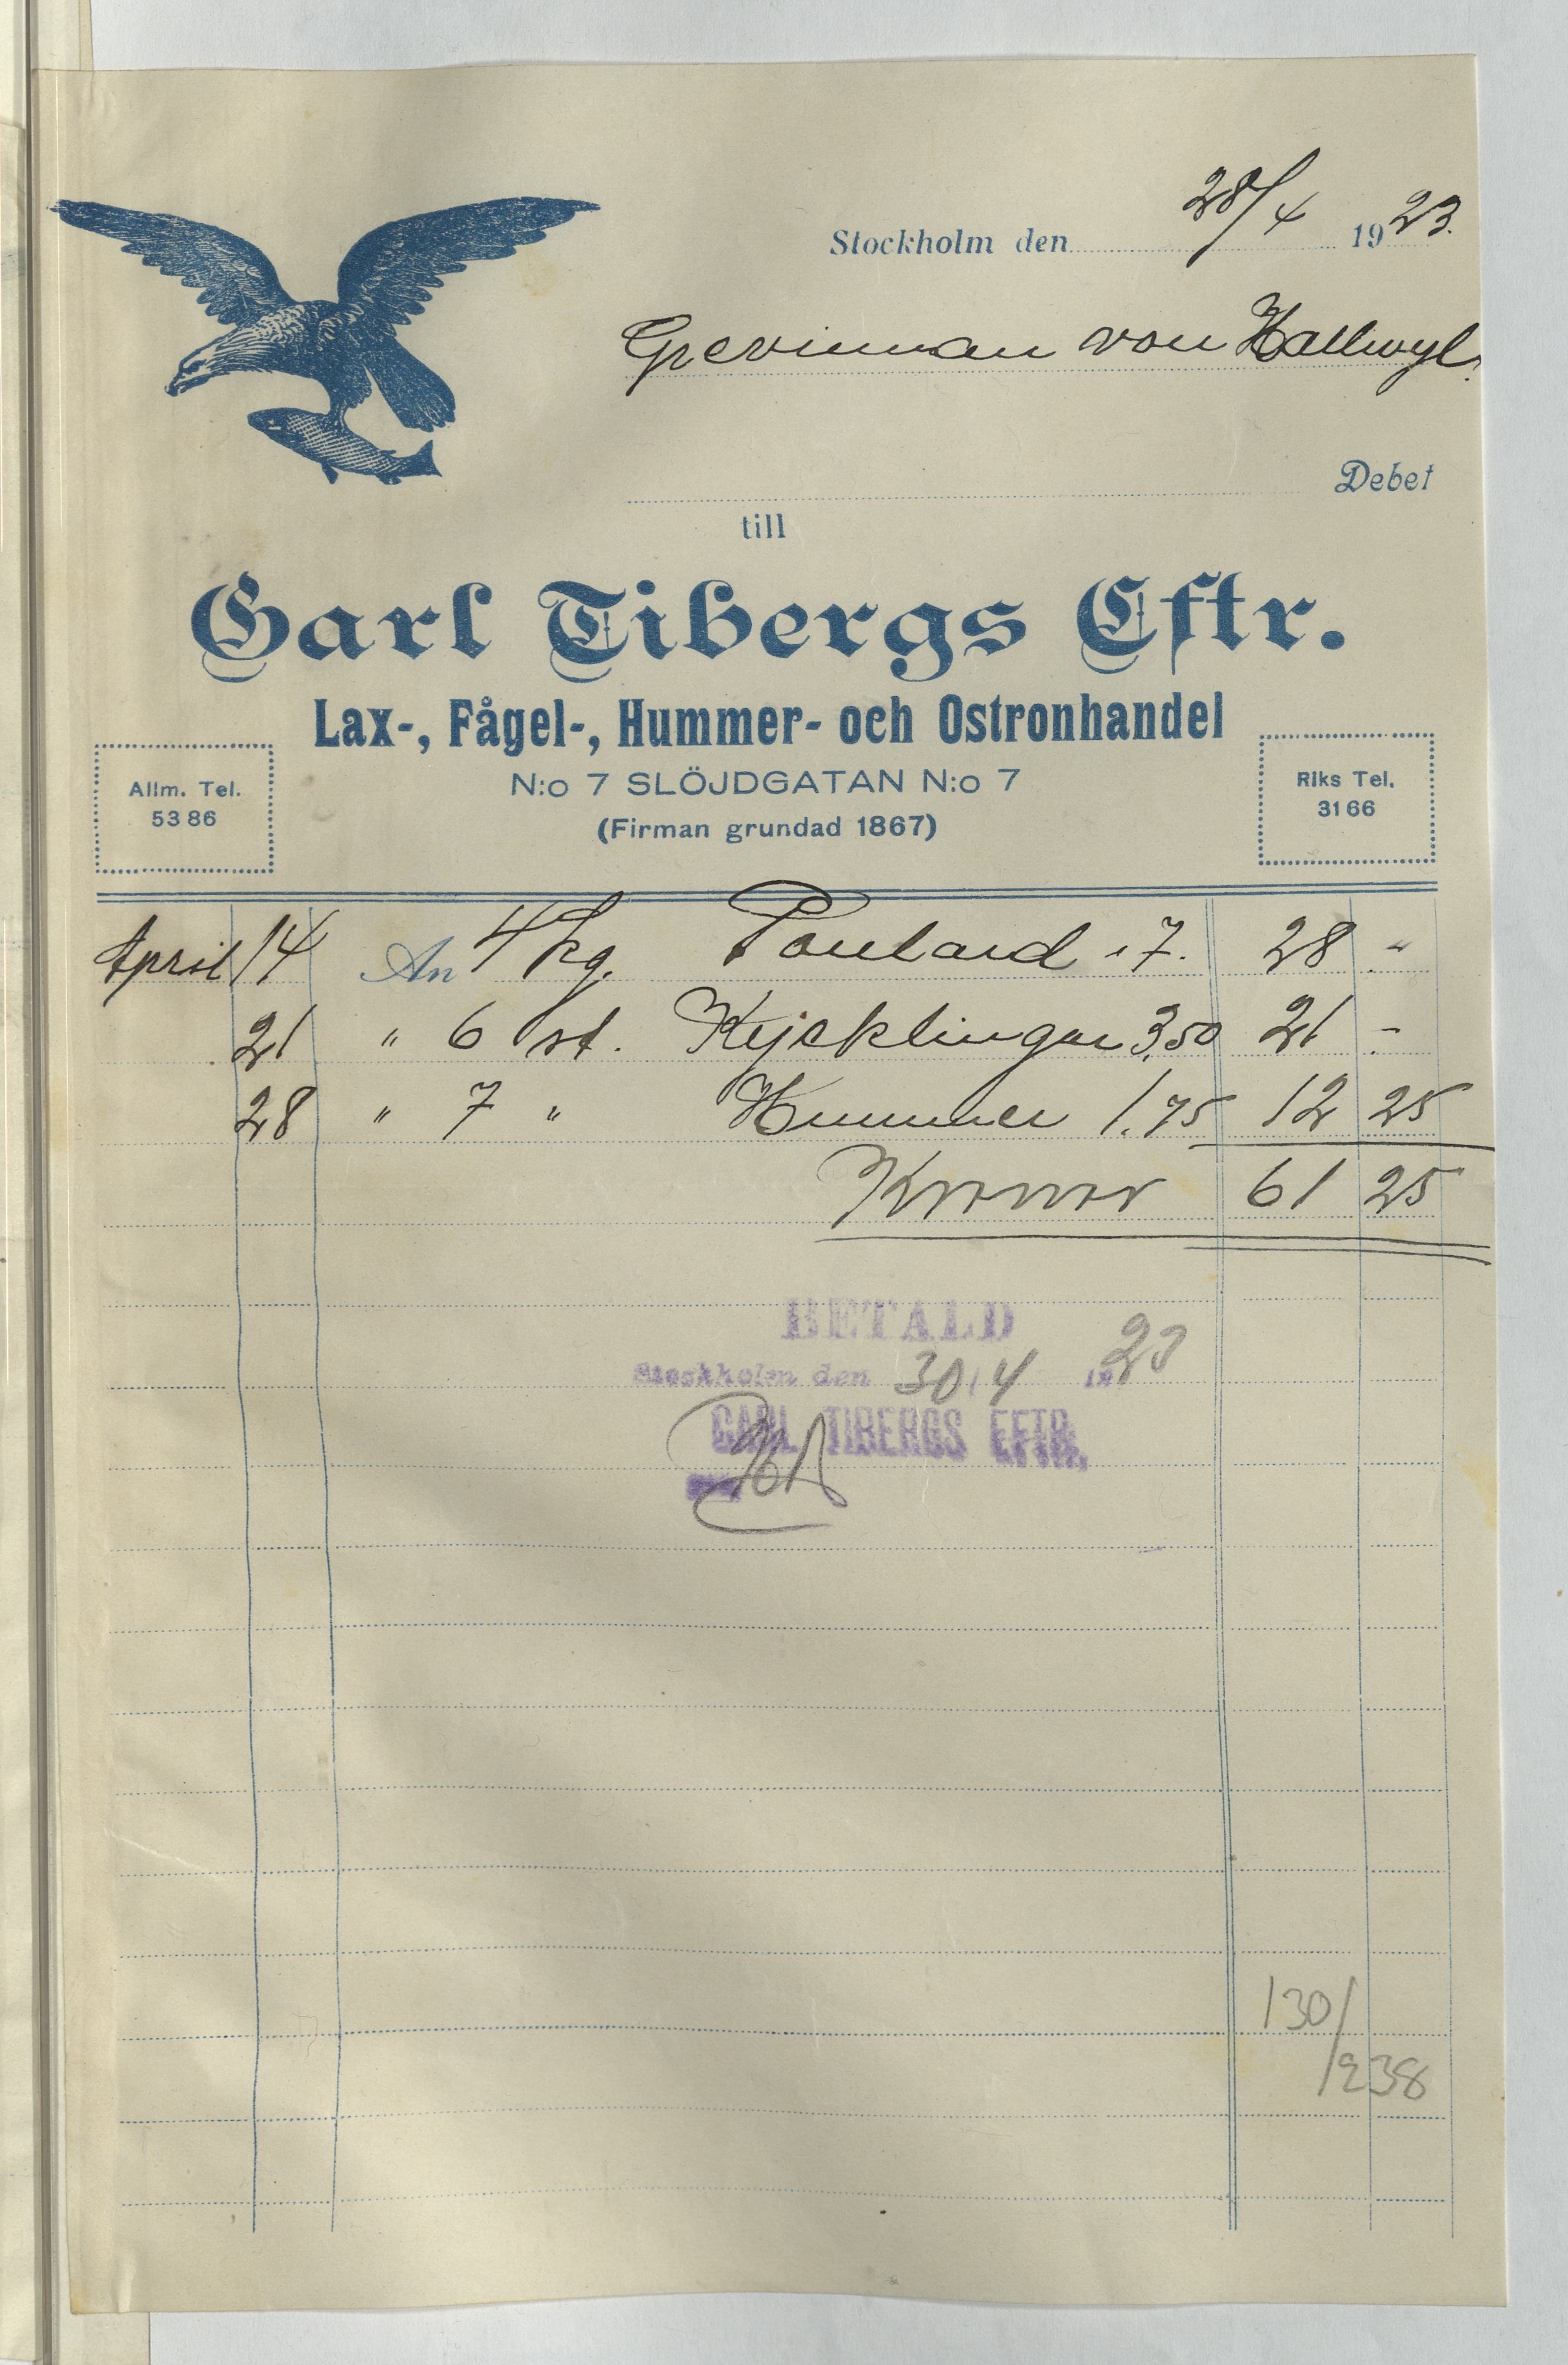 Stockholm den 28/4 1923.
Grevinnan von Hallwyl.
Debet
till
Carl Tibergs Eftr.
Lax-, Fågel-, Hummer- och Ostronhandel
N:o 7 SLÖJDGATAN N:o 7
(Firman grundad 1867)
Allm. Tel.
53 86
Riks Tel.
31 66
April 14 An 4 kg. Poulard 7. 28 "
21 " 6 st. Kycklingar 3,50 21 -
28 " 7 " Hummer 1.75 12 25
Kronor 61 25
BETALD
Stockholm den 30/4 1923
CARL TIBERGS EFTR.
130/
1238